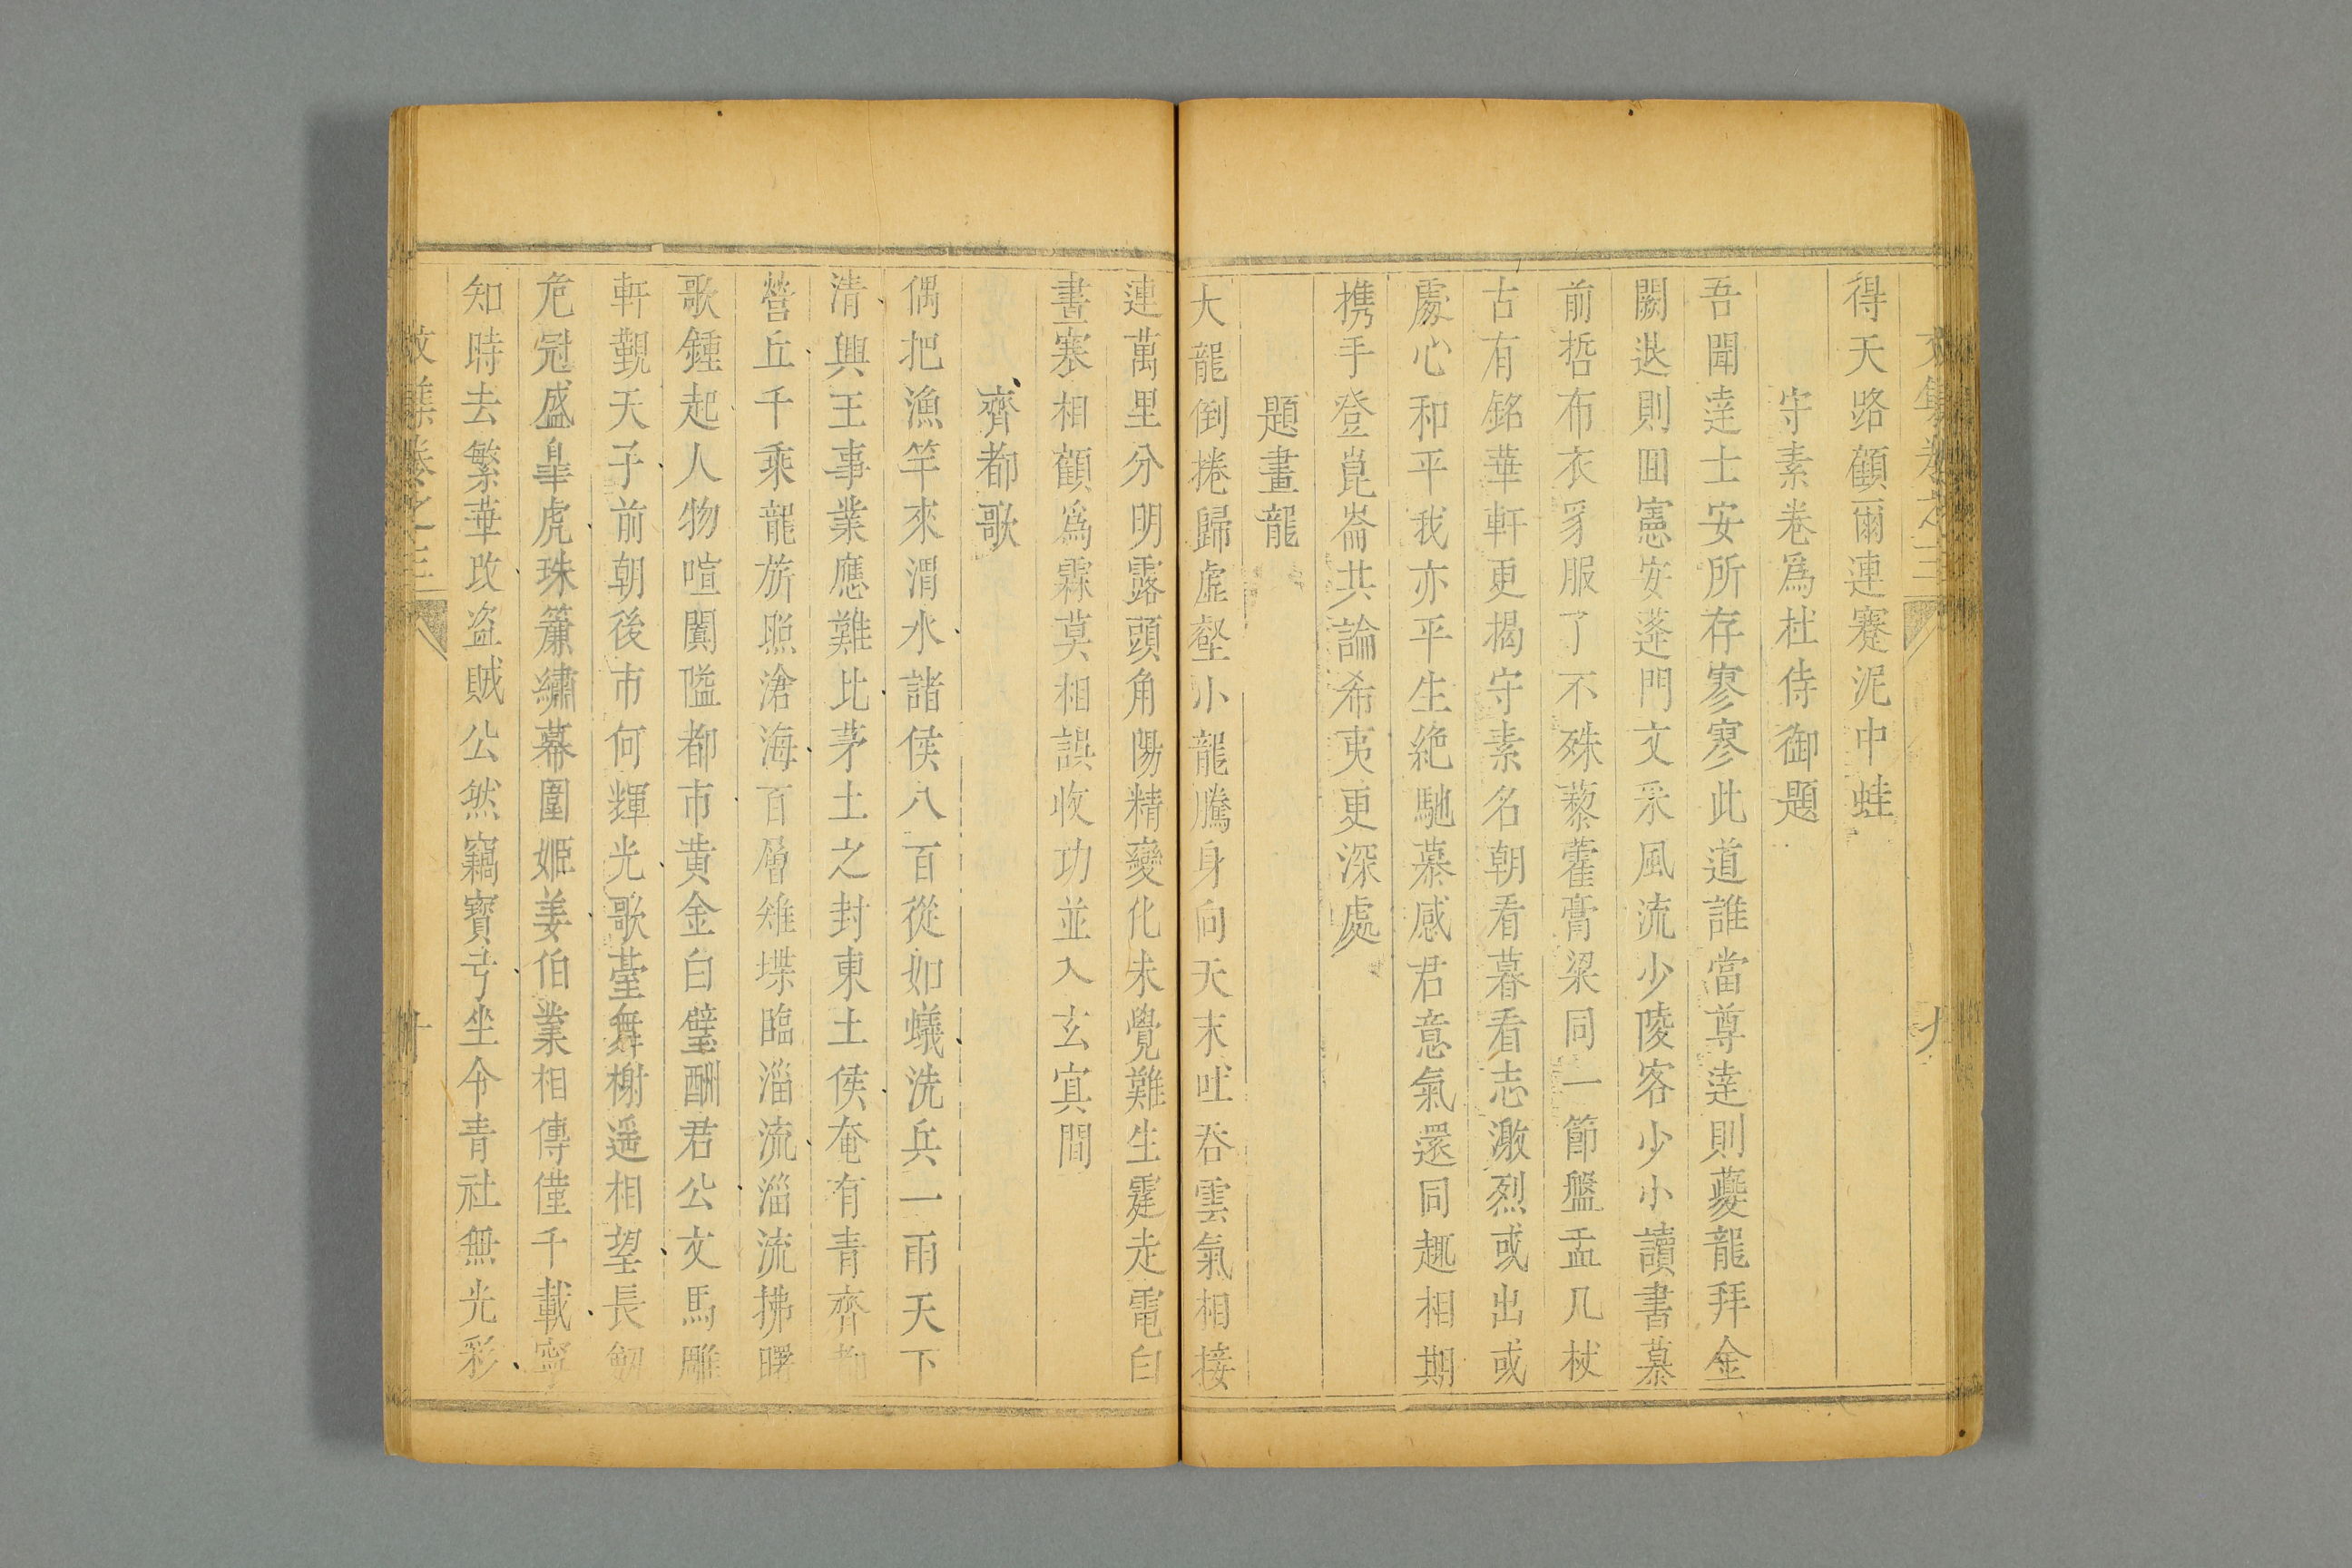 文集卷之三
九
得天路顧爾連蹇泥中蛙
守素卷爲杜侍御題
吾聞達士安所存寥寥此道誰當尊達則夔龍拜金
闕退則回憲安蓬門文采風流少陵客少小讀書慕
前哲布衣豸服了不殊藜藿膏粱同一節盤盂几杖
古有銘華軒更揭守素名朝看暮看志激烈或出或
處心和平我亦平生絶馳慕感君意氣還同趣相期
携手登崑崙共論希夷更深處
題畫龍
大龍倒捲歸虛壑小龍騰身向天末吐吞雲氣相接
連萬里分明露頭角陽精變化未覺難生霆走電白
晝寒相顧爲霖莫相誤收功並入玄冥間
齊都歌
偶把漁竿來渭水諸侯八百從如蟻洗兵一雨天下
清興王事業應難比茅土之封東土侯奄有青齊都
營丘千乘龍旂照滄海百層雉堞臨淄流淄流拂曙
歌鍾起人物喧闐隘都市黄金白璧酬君公文馬雕
軒覲天子前朝後市何輝光歌臺舞榭遥相望長劒
危冠盛皐虎珠簾繡幕圍姬姜伯業相傳僅千載寧
知時去繁華改盗賊公然竊寳弓坐令青社無光彩
文集卷之三
十